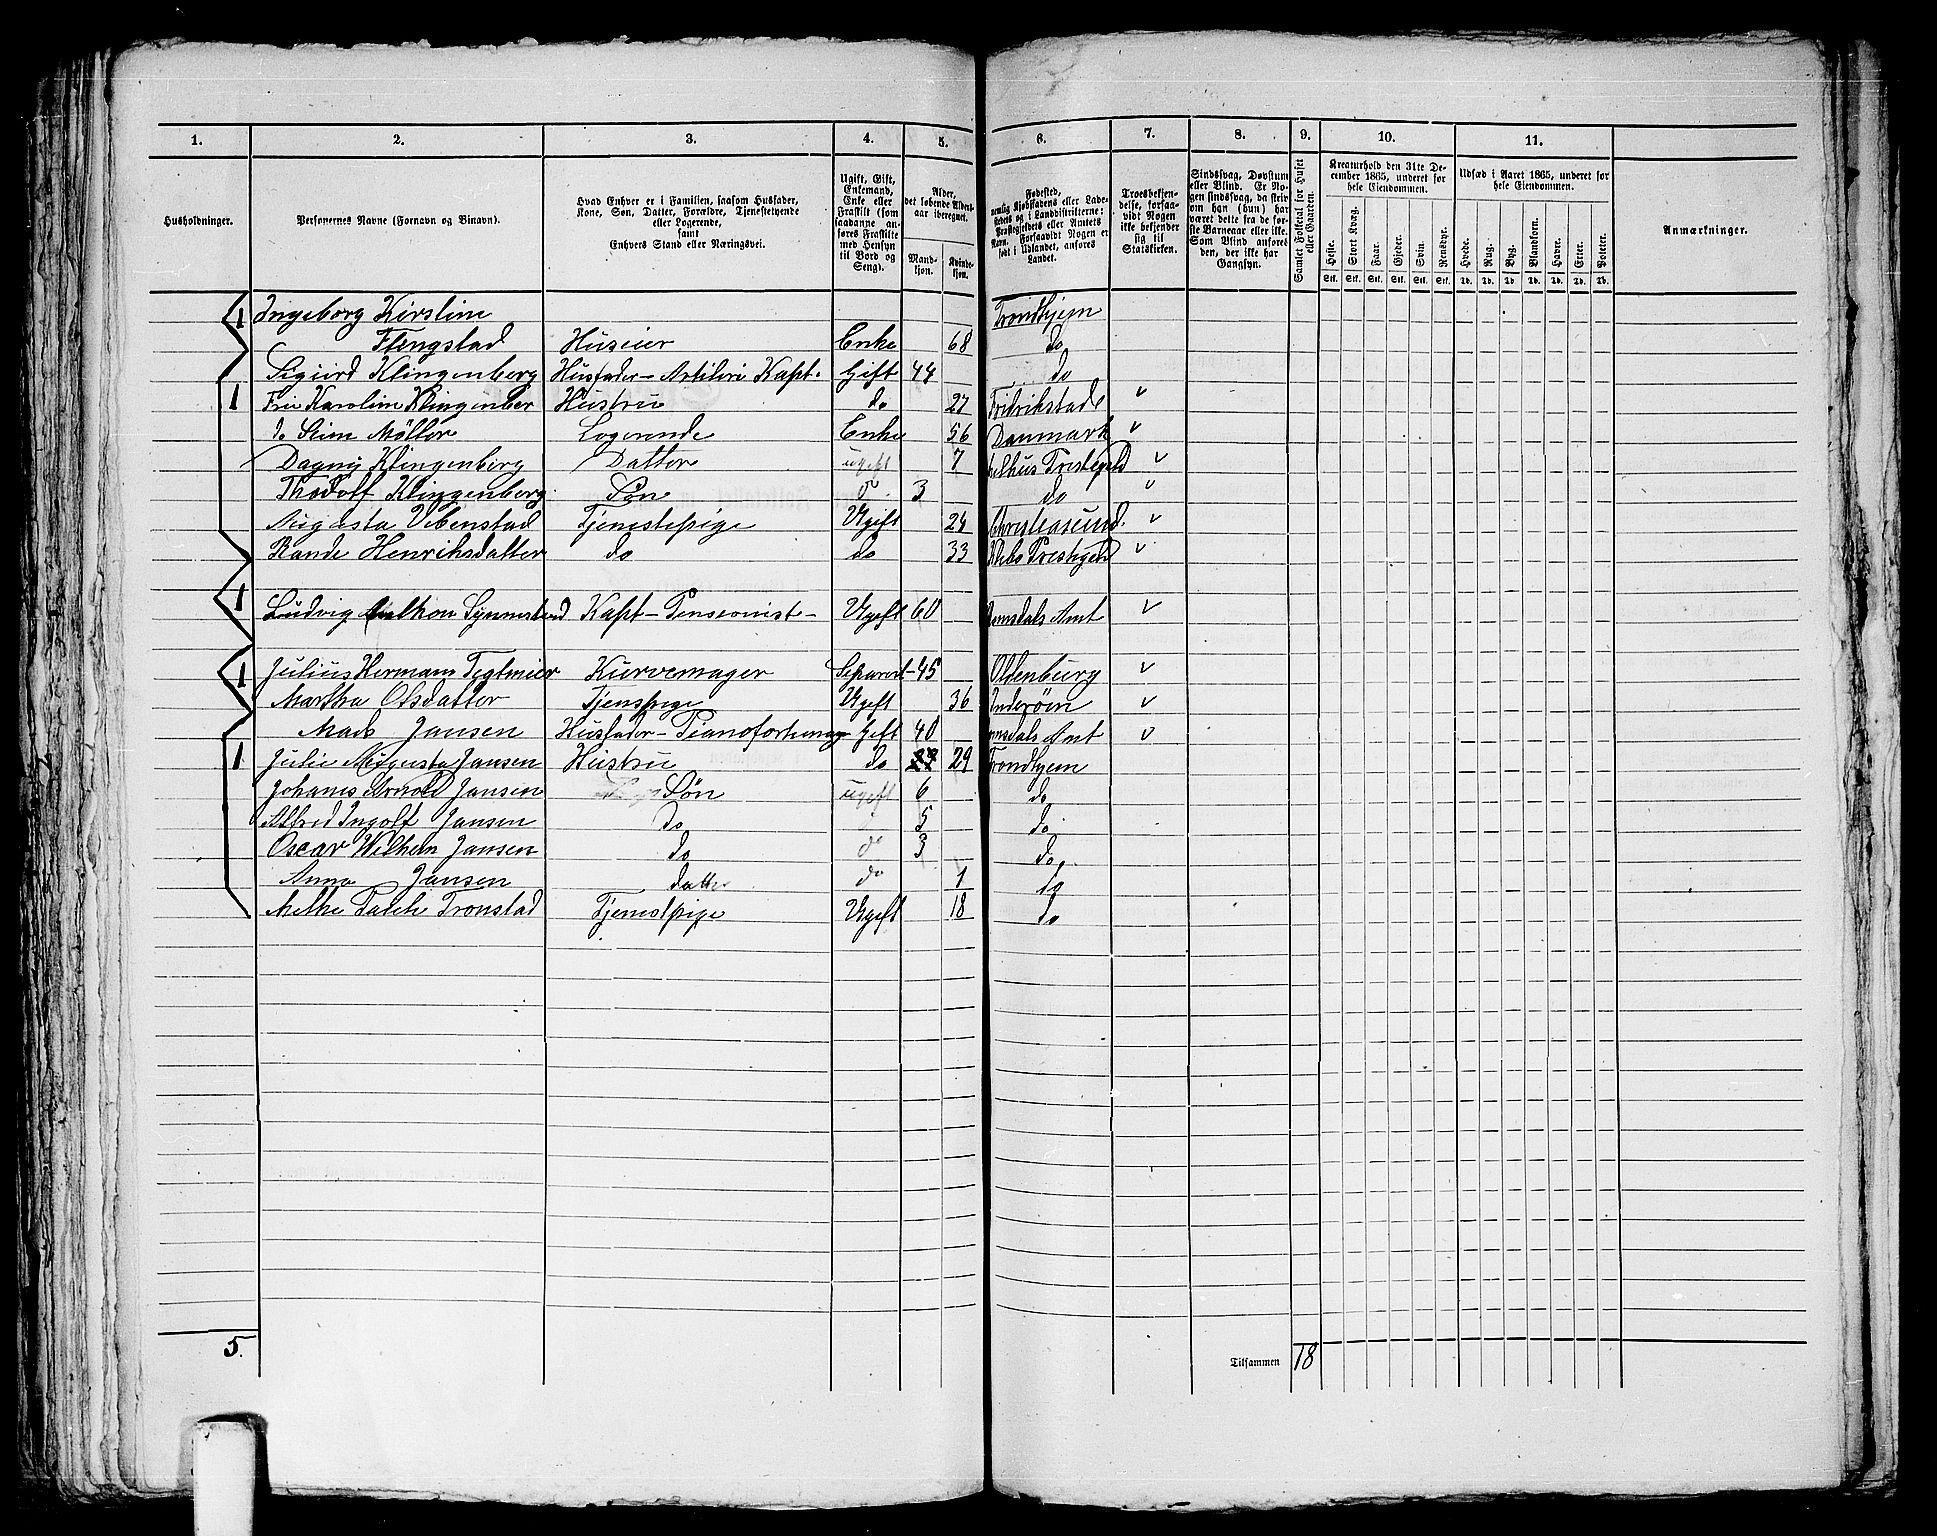 1. 2. 3. 4. 5. 6. 7. 8. 9. 10. 11.
Husholdninger.
Personernes Navne (Fornavn og Binavn).
Hvad Enhver er i Familien, saasom Husfader,
Kone, Søn, Datter, Forældre, Tjenestetyende
eller Logerende,
samt
Enhvers Stand eller Næringsvei.
Ugift, Gift,
Enkemand,
Enke eller
Fraskilt (som
saadanne an-
føres Fraskilte
med Hensyn
til Bord og
Seng).
Alder,
det løbende Alders-
aar iberegnet.
Mand-
kjøn.
Kvinde-
kjøn.
Fødested,
nemlig Kjøbstadens eller Lade-
stedets og i Landdistrikterne:
Præstegjeldets eller Amtets
Navn. Forsaavidt Nogen er
født i Udlandet, anføres
Landet.
Troesbekjen-
delse, forsaa-
vidt Nogen
ikke bekjender
sig til
Statskirken.
Sindssvag, Døvstum
eller Blind. Er No-
gen sindssvag, da skriv
om han (hun) har
været dette fra de før-
ste Barneaar eller ikke.
Som Blind anføres
den, der ikke har
Gangsyn.
Samlet Folketal for Huset
eller Gaarden.
Kreaturhold den 31te De-
cember 1865, underet for
hele Eiendommen.
Heste. Stort Kvæg. Faar. Gjeder. Svin. Rensdyr.
Stk. Stk. Stk. Stk. Stk. Stk.
Udsæd i Aaret 1865, underet for
hele Eiendommen.
Hvede. Rug. Byg. Blandkorn. Havre. Erter. Poteter.
Td. Td. Td. Td. Td. Td. Td.
Anmærkninger.
1 Ingeborg Kirstine Trondhjem
Flengstad Huseier Enke 68 do
Sigurd Klingenberg Husfader - Artileri Kapt. Gift 44 do
1 Fru Karoline Klingenber Hustru do 27 Fridrikstad
do Stim Møller Logerende Enke 56 Danmark
Dagny Klingenberg Datter ugift 7 Melhus Prestegjeld
Thodolf Klingenberg Søn do 3 do
Augusta Vebenstad Tjenestepige Ugift 24 Christiasund
Rande Henriksdatter do do 33 Klebo Prestegjeld
1 Ludvig Synnestved Kapt - Pensionist - Ugift 60 Romsdals Amt
1 Julius Herman Tegtmeier Kurvemager Separert - 45 Oldenburg
Martha Olsdatter Tjenspige Ugift 36 Inderøen
Mads Jansen Husfader - Pianofortemager Gift 40 Romsdals Amt
1 Julie Augusta Jansen Hustru do 29 Trondhjem
Johanes Arnold Jansen Søn ugift 6 do
Alfred Ingolf Jansen do 5 do
Oscar Wilhelm Jansen do do 3 do
Anna Jansen datter do 1 do
Tronstad Tjenestpige Ugift 18 do
5.
Tilsammen 18